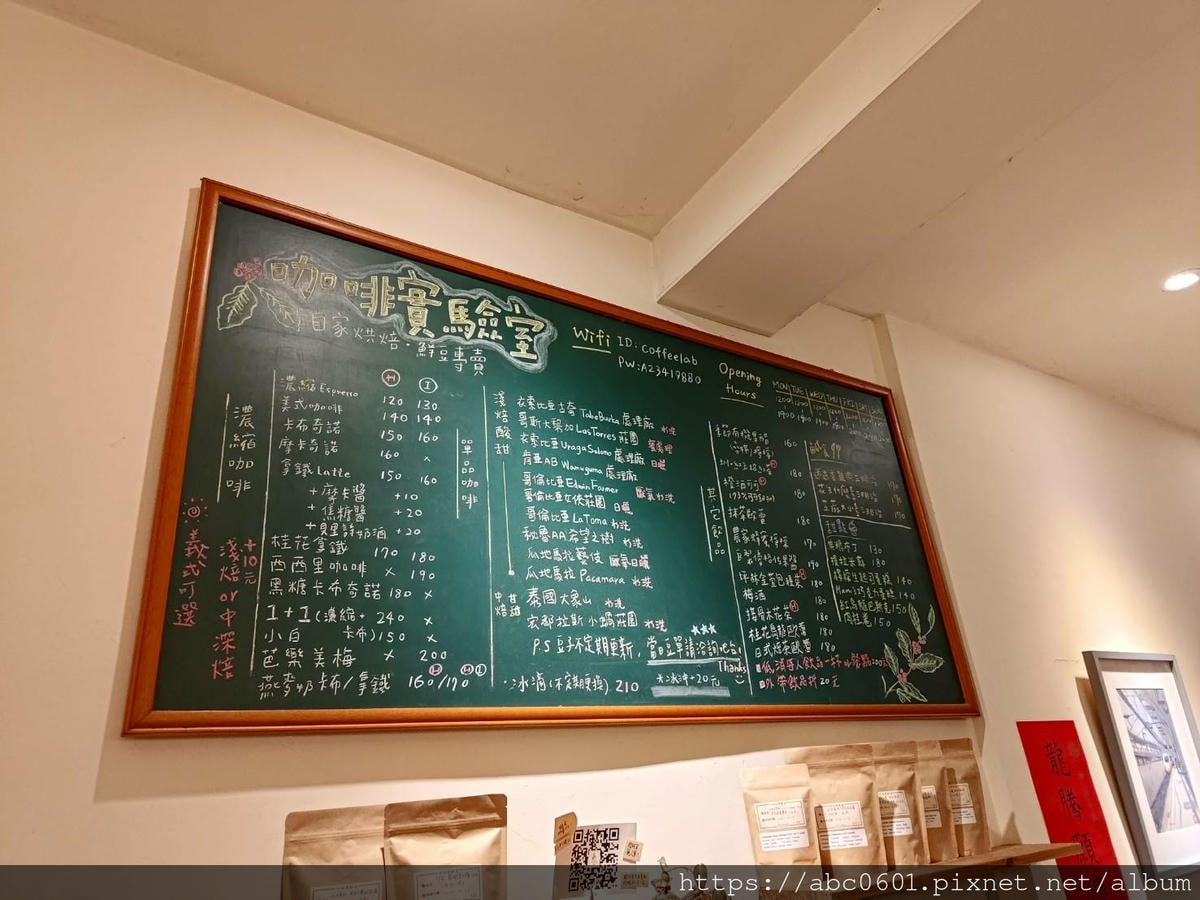 咖啡實驗室
自家烘焙・鮮豆專賣
Wifi ID: coffeelab
PW: A23419880
Opening Hours
MON TUE WED THU FRI SAT SUN
濃縮咖啡
H I
濃縮 Espresso 120 130
美式咖啡 140 140
卡布奇諾 150 160
摩卡奇諾 160 x
拿鐵 Latte 150 160
+摩卡醬 +10
+焦糖醬 +20
+貝里詩奶酒 +30
桂花拿鐵 170 180
西西里咖啡 x 190
黑糖卡布奇諾 180 x
1+1(濃縮+卡布) 240 x
小白 150 x
芭樂美梅 x 200
燕麥奶卡布/拿鐵 160/170 H H I
義式可選
淺焙 or 中深焙
+10元
單品咖啡
淺焙酸甜
衣索比亞古奇 TakeBurka 處理廠 水洗
哥斯大黎加 LasTorres 莊園 蜜處理
衣索比亞 Uraga Solomo 處理廠 日曬
肯亞AB Wamuguma 處理廠
哥倫比亞 Edwin Farmer 厭氧水洗
哥倫比亞 莊園 日曬
哥倫比亞 LaToma 水洗
秘魯AA 希望之樹 水洗
瓜地馬拉藝伎 厭氧日曬
瓜地馬拉 Pacamara 水洗
中焙甘甜
泰國大象山 水洗
宏都拉斯 小蝸莊園 水洗
P.S 豆子不定期更新, 當日豆單請洽詢吧台!
Thanks
・冰滴(不定期更換) 210
*冰沖+20元
其它飲品
160
180
180
抹茶歐蕾 180
農家蜂蜜檸檬 170
180
坪林金萱包種茶 H 180
梅酒 180
接骨木花茶 H 180
桂花烏龍歐蕾 180
日式焙茶歐蕾 180
低消每人飲品一杯or餐點200元
外帶飲品折20元
170
170
170
甜點
焦糖布丁 130
提拉米蘇 180
檸檬生起司蛋糕 140
Mami's巧克力蛋糕 140
紅烏龍巴斯克 150
肉桂捲 150
龍騰
https://abc0601.pixnet.net/album